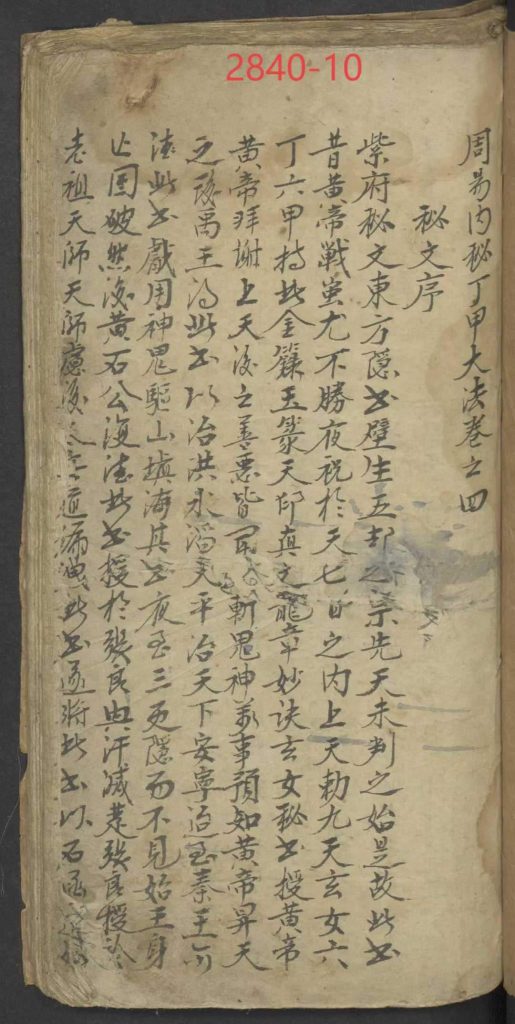 2840-10
周易内秘丁甲大法卷之四
秘文序
紫府秘文東方隐书壁生五却之宗先天未判之始是故此书
昔黄帝戦蚩尤不勝夜祝於天七日之内上天勅九天玄女六
丁六甲持此金籙玉篆天印真文龍章妙诀玄女秘书授黄帝
黄帝拜謝上天後之善悪皆 斬鬼神萬事預知黄帝昇天
之後禹王得此书以治洪水滔天平治天下安寧迨至秦王
法此书戲用神鬼驅山填海其书夜至三更隐而不見始王身
亡国破然後黄石公復法此书授於張良 汗滅楚張良授於
老祖天師天師慮後 道漏洩此书遂將此书以石函